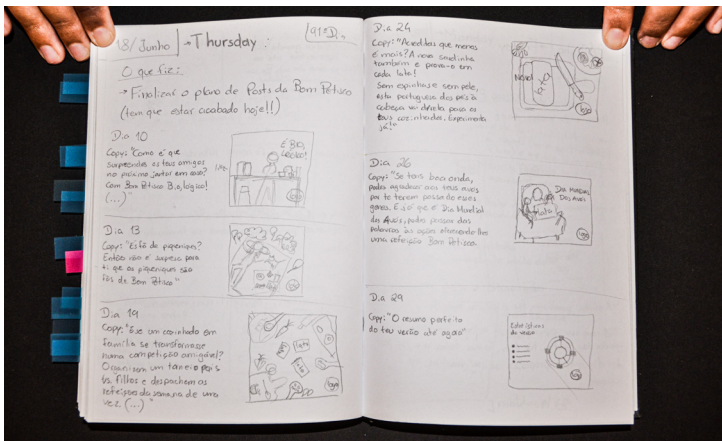 18/Junho → Thursday:
91º Dia
O que fiz:
→ Finalizar o plano de Posts da Bom Petisco
(tem que estar acabado hoje!!)
Dia 10
Copy: "Como é que
surpreendes os teus amigos
no próximo jantar em casa?
Com Bom Petisco Biológico!
(...)"
É BIO,
LÓGICO!
Dia 13
Copy: "És fã de piqueniques?
Então não é surpresa para
ti que os piqueniques são
fãs de Bom Petisco"
Dia 19
Copy: "E se um cozinhado em
família se transformasse
numa competição amigável?
Organizem um torneio pais
vs. filhos e despachem as
refeições da semana de uma
vez. (...)"
lata
logo
Dia 24
Copy: "Acreditas que menos
é mais? A nova sardinha
também e prova-o em
cada lata!
Sem espinhas e sem pele,
esta portuguesa dos pés à
cabeça vai direta para os
teus cozinhados. Experimenta
já!"
Nova!
logo
Dia 26
Copy: "Se tens boa onda,
podes agradecer aos teus avós
por te terem passado esses
genes. E só que é Dia Mundial
dos Avós, podes passar das
palavras às ações oferecendo-lhes
uma refeição Bom Petisco.
DIA MUNDIAL
DOS AVÓS
lata
logo
Dia 29
Copy: "O resumo perfeito
do teu verão até agora"
Estatísticas
de verão